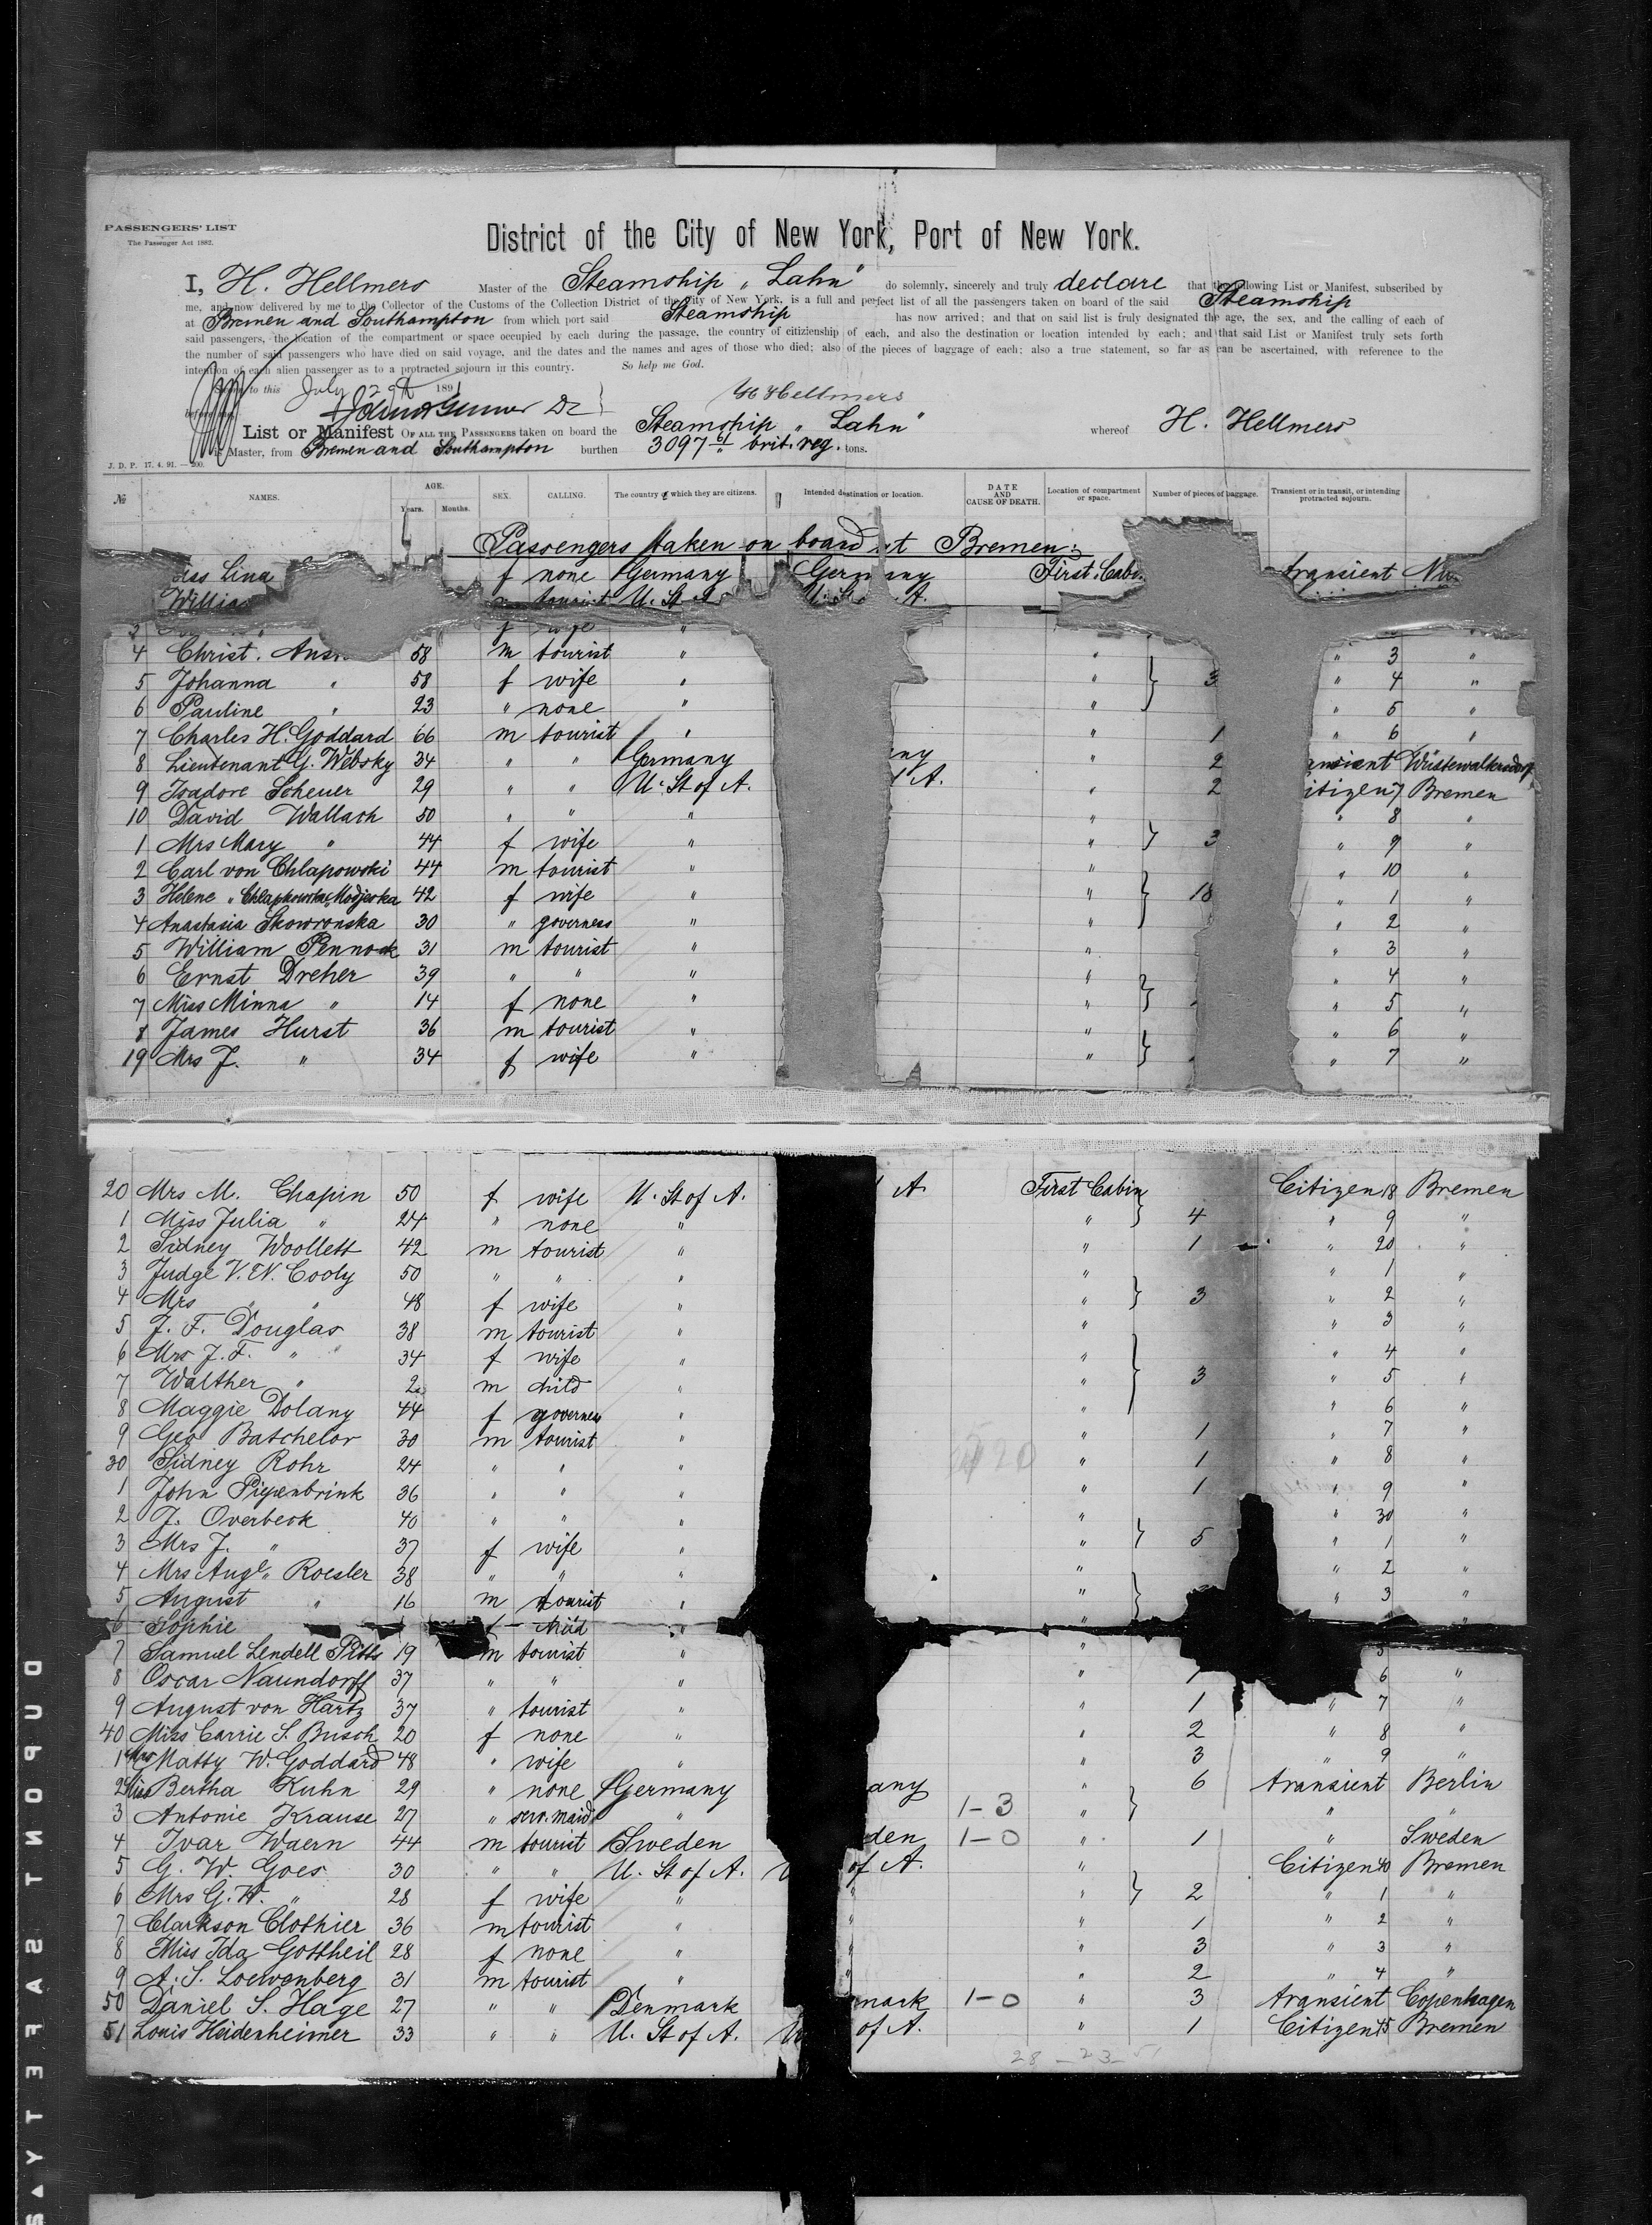 PASSENGERS' LIST
The Passenger Act 1882.
District of the City of New York, Port of New York.
I, H. Hellmers Master of the Steamship „Lahn" do solemnly, sincerely and truly declare that the following List or Manifest, subscribed by
me, and now delivered by me to the Collector of the Customs of the Collection District of the City of New York, is a full and perfect list of all the passengers taken on board of the said Steamship
at Bremen and Southampton from which port said Steamship has now arrived; and that on said list is truly designated the age, the sex, and the calling of each of
said passengers, the location of the compartment or space occupied by each during the passage, the country of citizenship of each, and also the destination or location intended by each; and that said List or Manifest truly sets forth
the number of said passengers who have died on said voyage, and the dates and the names and ages of those who died; also of the pieces of baggage of each; also a true statement, so far as can be ascertained, with reference to the
intention of each alien passenger as to a protracted sojourn in this country. So help me God.
to this July 189
H Hellmers
List or Manifest OF ALL THE PASSENGERS taken on board the Steamship „Lahn" whereof H. Hellmers
is Master, from Bremen and Southampton burthen 3097 brit. reg. tons.
J. D. P. 17. 4. 91. — 200.
№ NAMES. AGE. Years. Months. SEX. CALLING. The country of which they are citizens. Intended destination or location. DATE AND CAUSE OF DEATH. Location of compartment or space. Number of pieces of baggage. Transient or in transit, or intending protracted sojourn.
Passengers taken on board at Bremen:
iss Lina f none Germany Germany First Cabi transient
Willia m tourist U. St A.
3 f wife "
4 Christ. Ans 58 m tourist " " " 3 "
5 Johanna " 58 f wife " " } 3 " 4 "
6 Pauline " 23 " none " " " 5 "
7 Charles H. Goddard 66 m tourist " " 1 " 6 "
8 Lieutenant G. Websky 34 " " Germany ny " 2 ansient Wüstewaltersdorf
9 Isadore Scheuer 29 " " U. St of A. A. " 2 itizen 7 Bremen
10 David Wallach 50 " " " " " 8 "
1 Mrs Mary " 44 f wife " " } 3 " 9 "
2 Carl von Chlapowski 44 m tourist " " " 10 "
3 Helene " Chlapkowska, Modjeska 42 f wife " " } 18 " 1 "
4 Anastasia Skowronska 30 " governess " " " 2 "
5 William Pennock 31 m tourist " " " 3 "
6 Ernst Dreher 39 " " " " " 4 "
7 Miss Minna " 14 f none " " } " 5 "
8 James Hurst 36 m tourist " " " 6 "
19 Mrs J. " 34 f wife " " } " 7 "
20 Mrs M. Chapin 50 f wife U. St of A. A First Cabin Citizen 18 Bremen
1 Miss Julia " 24 " none " " } 4 " 9 "
2 Sidney Woollett 42 m tourist " " 1 " 20 "
3 Judge V. N. Cooly 50 " " " " " 1 "
4 Mrs " " 48 f wife " " } 3 " 2 "
5 J. F. Douglas 38 m tourist " " " 3 "
6 Mrs J. F. " " 34 f wife " " " 4 "
7 Walther " 2 m child " " } 3 " 5 "
8 Maggie Dolany 44 f governess " " " 6 "
9 Geo Batchelor 30 m tourist " " 1 " 7 "
30 Sidney Rohr 24 " " " " 1 " 8 "
1 John Piepenbrink 36 " " " " 1 " 9 "
2 J. Overbeck 40 " " " " " 30 "
3 Mrs J. " 37 f wife " " } 5 " 1 "
4 Mrs Aug. " Roesler 38 " " " " " 2 "
5 August " 16 m tourist " " } " 3 "
6 Sophie f child " " "
7 Samuel Lendell Pitts 19 m tourist " " 5
8 Oscar Naundorff 37 " " " " 1 6 "
9 August von Hartz 37 " tourist " " 1 " 7 "
40 Miss Carrie S. Busch 20 f none " " 2 " 8 "
1 Mrs Matty W. Goddard 48 " wife " " 3 " 9 "
2 Miss Bertha Kuhn 29 " none Germany any " 6 transient Berlin
3 Antonie Krause 27 " serv. maid " 1-3 " } " "
4 Ivar Waern 44 m tourist Sweden den 1-0 " 1 " Sweden
5 G. W. Goes 30 " " U. St of A. U of A. " Citizen 40 Bremen
6 Mrs G. W. " 28 f wife " " " } 2 " 1 "
7 Clarkson Clothier 36 m tourist " " " 1 " 2 "
8 Miss Ida Gottheil 28 f none " " " 3 " 3 "
9 A. S. Loewenberg 31 m tourist " " " 2 " 4 "
50 Daniel S. Hage 27 " " Denmark mark 1-0 " 3 transient Copenhagen
51 Louis Heidenheimer 33 " " U. St of A. U of A. " 1 Citizen 45 Bremen
28 - 23 -